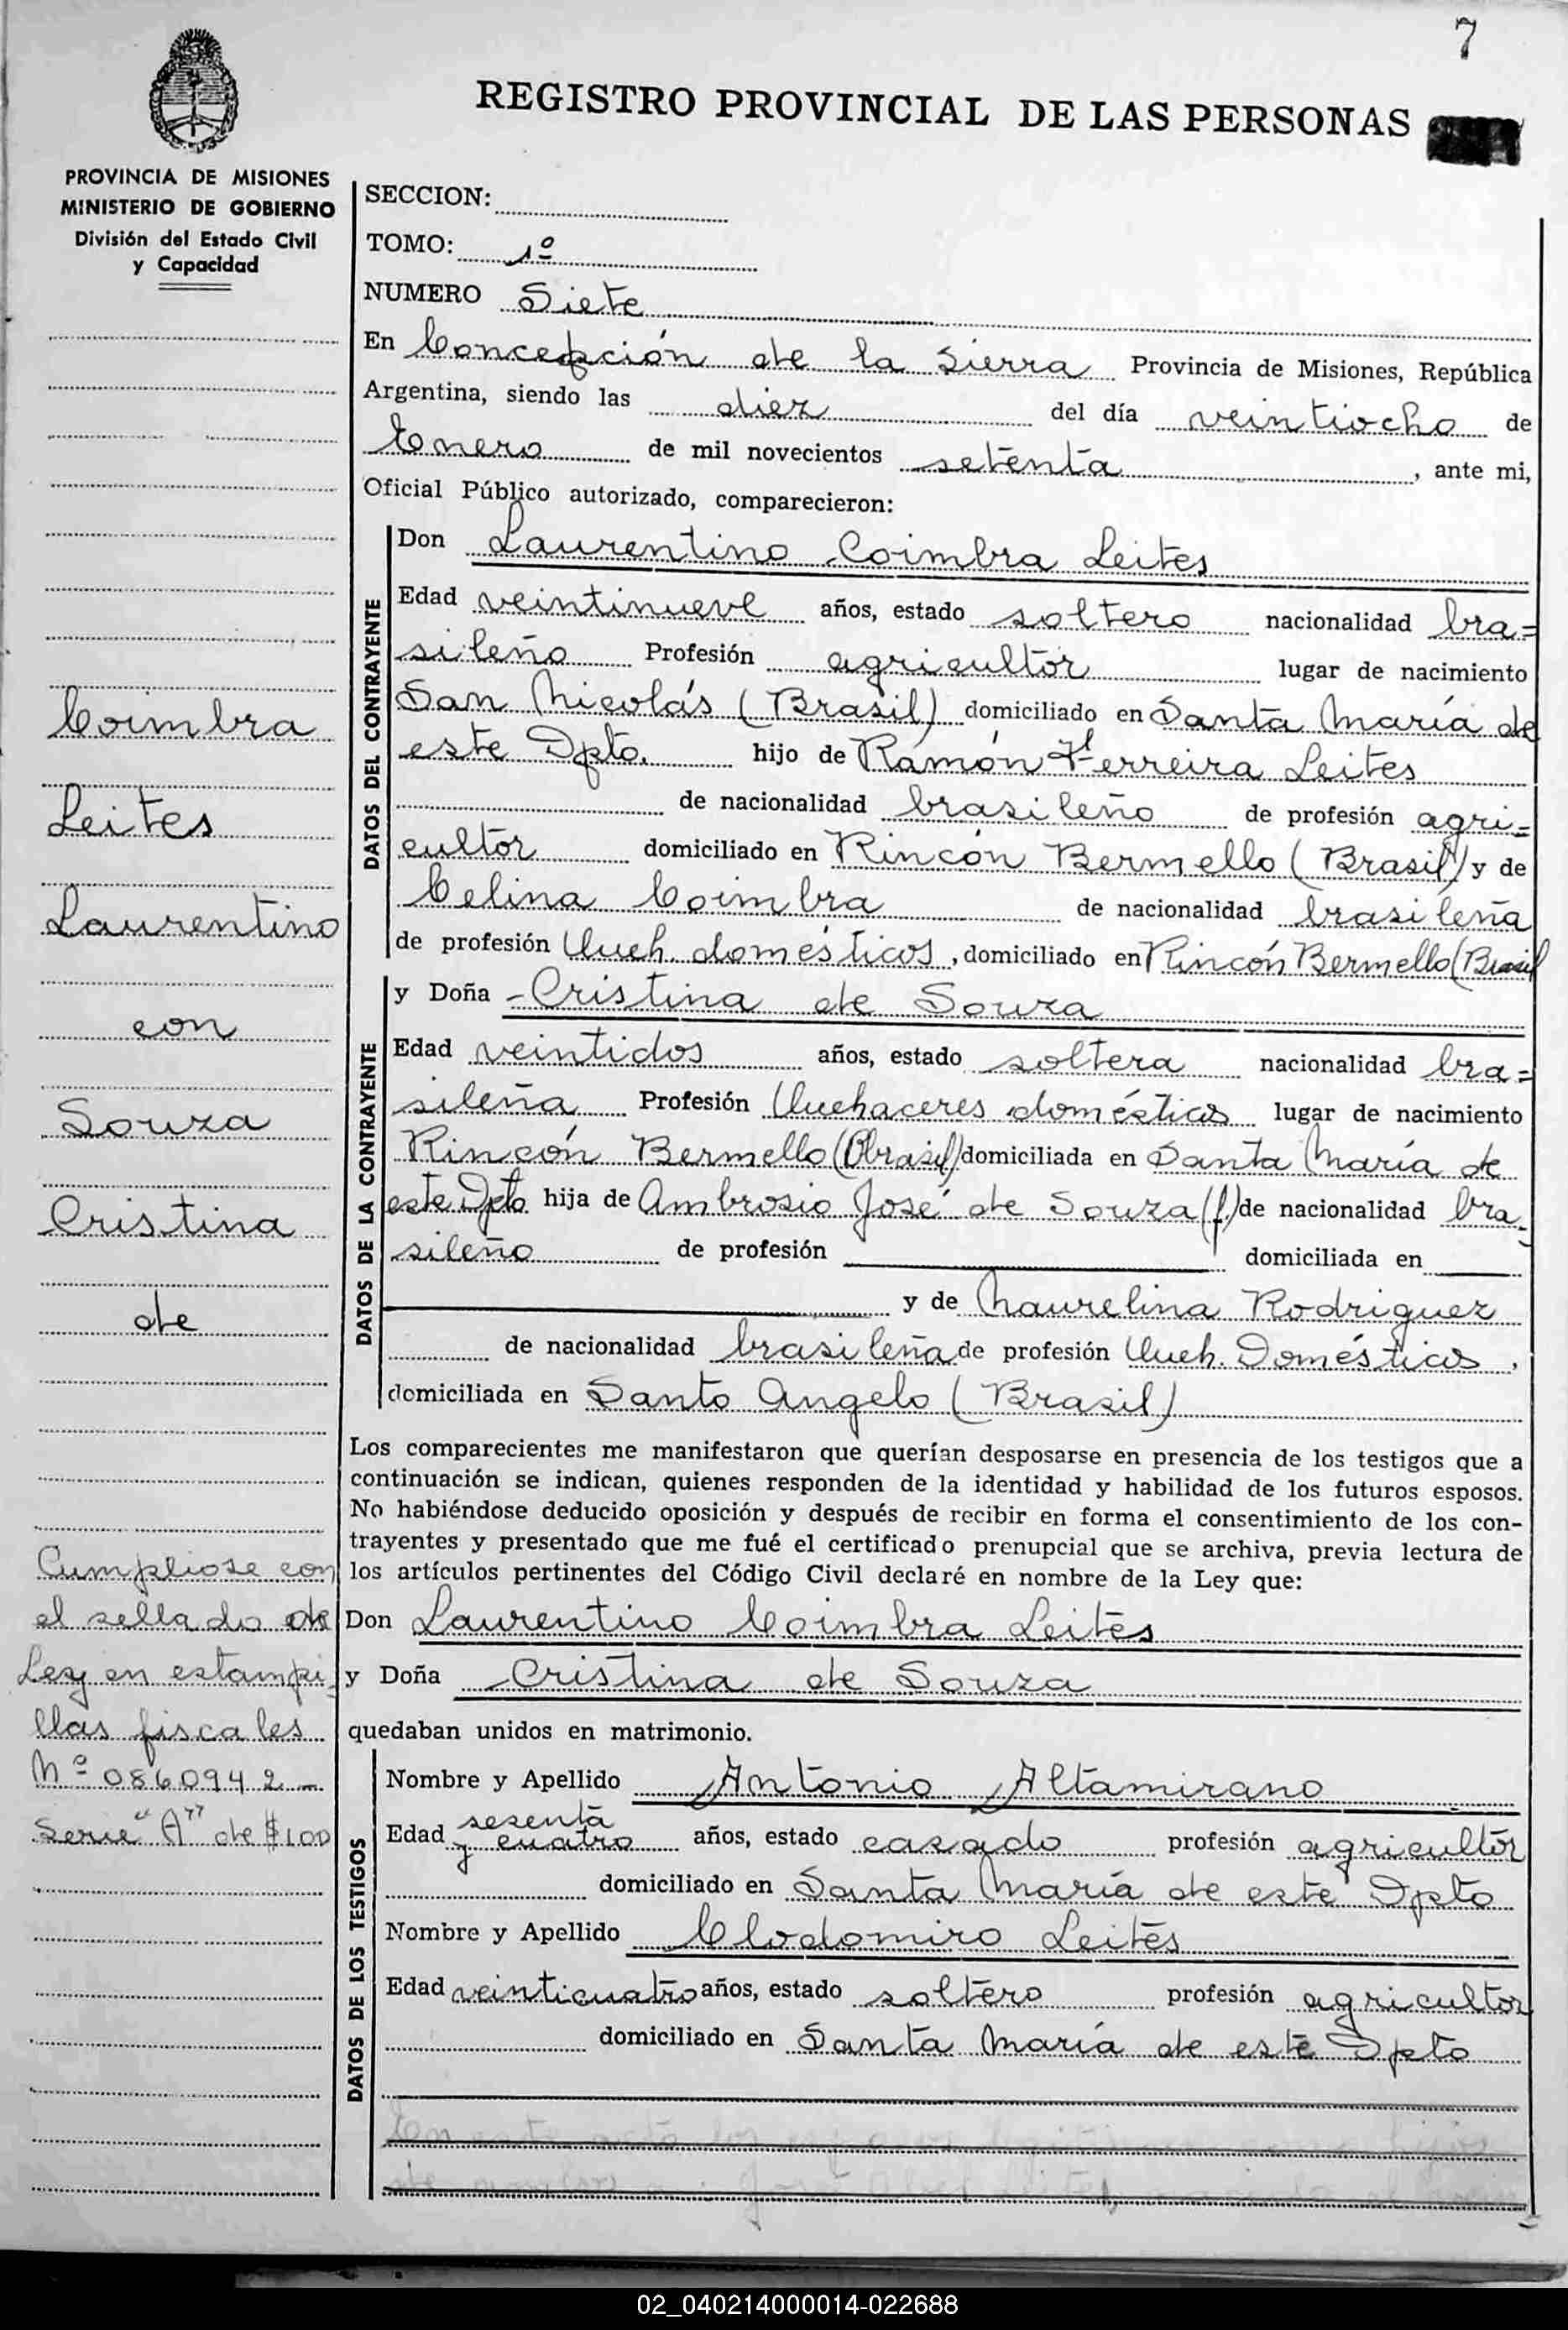 7
REGISTRO PROVINCIAL DE LAS PERSONAS
PROVINCIA DE MISIONES
MINISTERIO DE GOBIERNO
División del Estado Civil
y Capacidad
SECCION:
TOMO: 1º
NUMERO Siete
En Concepción de la Sierra Provincia de Misiones, República
Argentina, siendo las diez del día veintiocho de
Enero de mil novecientos setenta, ante mi,
Oficial Público autorizado, comparecieron:
DATOS DEL CONTRAYENTE
Don Laurentino Coimbra Leites
Edad veintinueve años, estado soltero nacionalidad bra=
sileño Profesión agricultor lugar de nacimiento
San Nicolás (Brasil) domiciliado en Santa María de
este Dpto. hijo de Ramón Ferreira Leites
de nacionalidad brasileño de profesión agri=
cultor domiciliado en Rincón Bermello (Brasil) y de
Celina Coimbra de nacionalidad brasileña
de profesión Queh. domésticos, domiciliado en Rincón Bermello (Brasil
DATOS DE LA CONTRAYENTE
y Doña Cristina de Souza
Edad veintidos años, estado soltera nacionalidad bra=
sileña Profesión Quehaceres domésticos lugar de nacimiento
Rincón Bermello (Brasil) domiciliada en Santa María de
este Dpto hija de Ambrosio José de Souza (f.) de nacionalidad bra-
sileño de profesión domiciliada en
y de Maurelina Rodriguez
de nacionalidad brasileña de profesión Queh. Domésticos,
domiciliada en Santo Angelo (Brasil)
Los comparecientes me manifestaron que querían desposarse en presencia de los testigos que a
continuación se indican, quienes responden de la identidad y habilidad de los futuros esposos.
No habiéndose deducido oposición y después de recibir en forma el consentimiento de los con-
trayentes y presentado que me fué el certificado prenupcial que se archiva, previa lectura de
los artículos pertinentes del Código Civil declaré en nombre de la Ley que:
Don Laurentino Coimbra Leites
y Doña Cristina de Souza
quedaban unidos en matrimonio.
DATOS DE LOS TESTIGOS
Nombre y Apellido Antonio Altamirano
Edad sesenta y cuatro años, estado casado profesión agricultor
domiciliado en Santa María de este Dpto
Nombre y Apellido Clodomiro Leites
Edad veinticuatro años, estado soltero profesión agricultor
domiciliado en Santa María de este Dpto
Coimbra
Leites
Laurentino
con
Souza
Cristina
de
Cumpliose con
el sellado de
Ley en estampi-
llas fiscales
Nº 0860942-
Serie "A" de $1.00
02_040214000014-022688